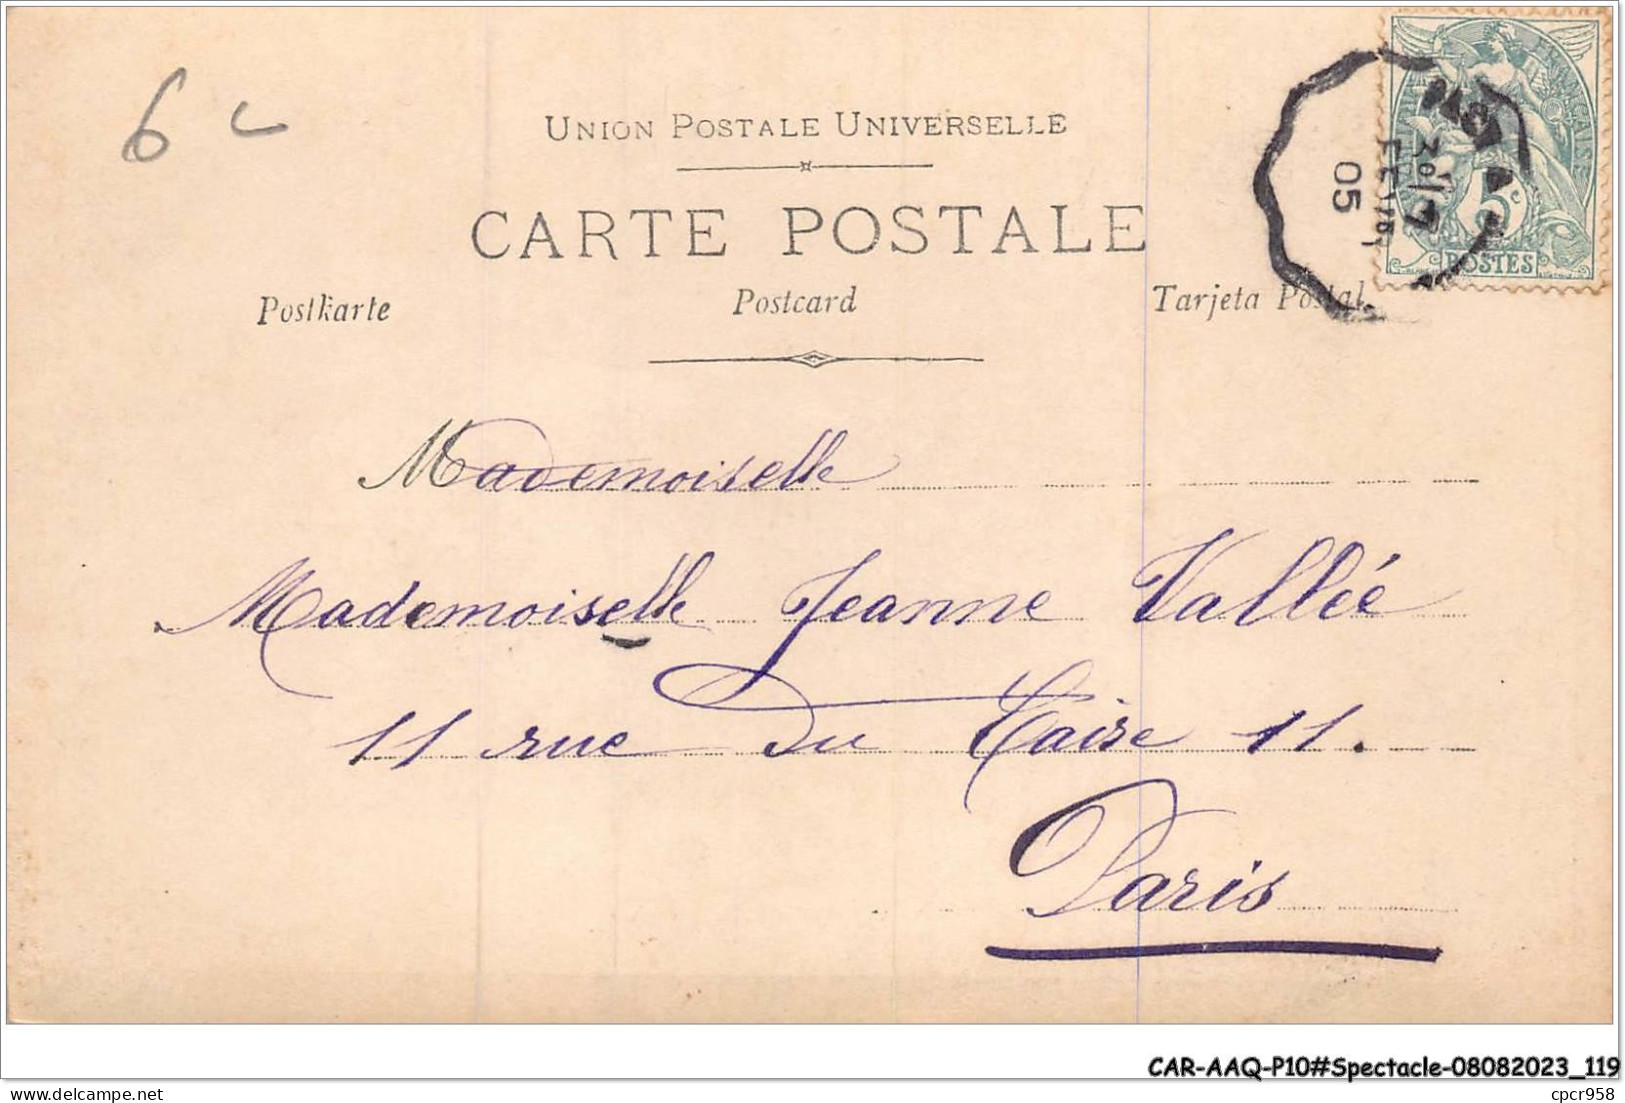 6 c
UNION POSTALE UNIVERSELLE
CARTE POSTALE
Postkarte Postcard Tarjeta Postal
5c
POSTES
FEVR
05
Mademoiselle
Mademoiselle Jeanne Vallée
11 rue Du Caire 11.
Paris
CAR-AAQ-P10#Spectacle-08082023_119
delcampe.net
cpcr958